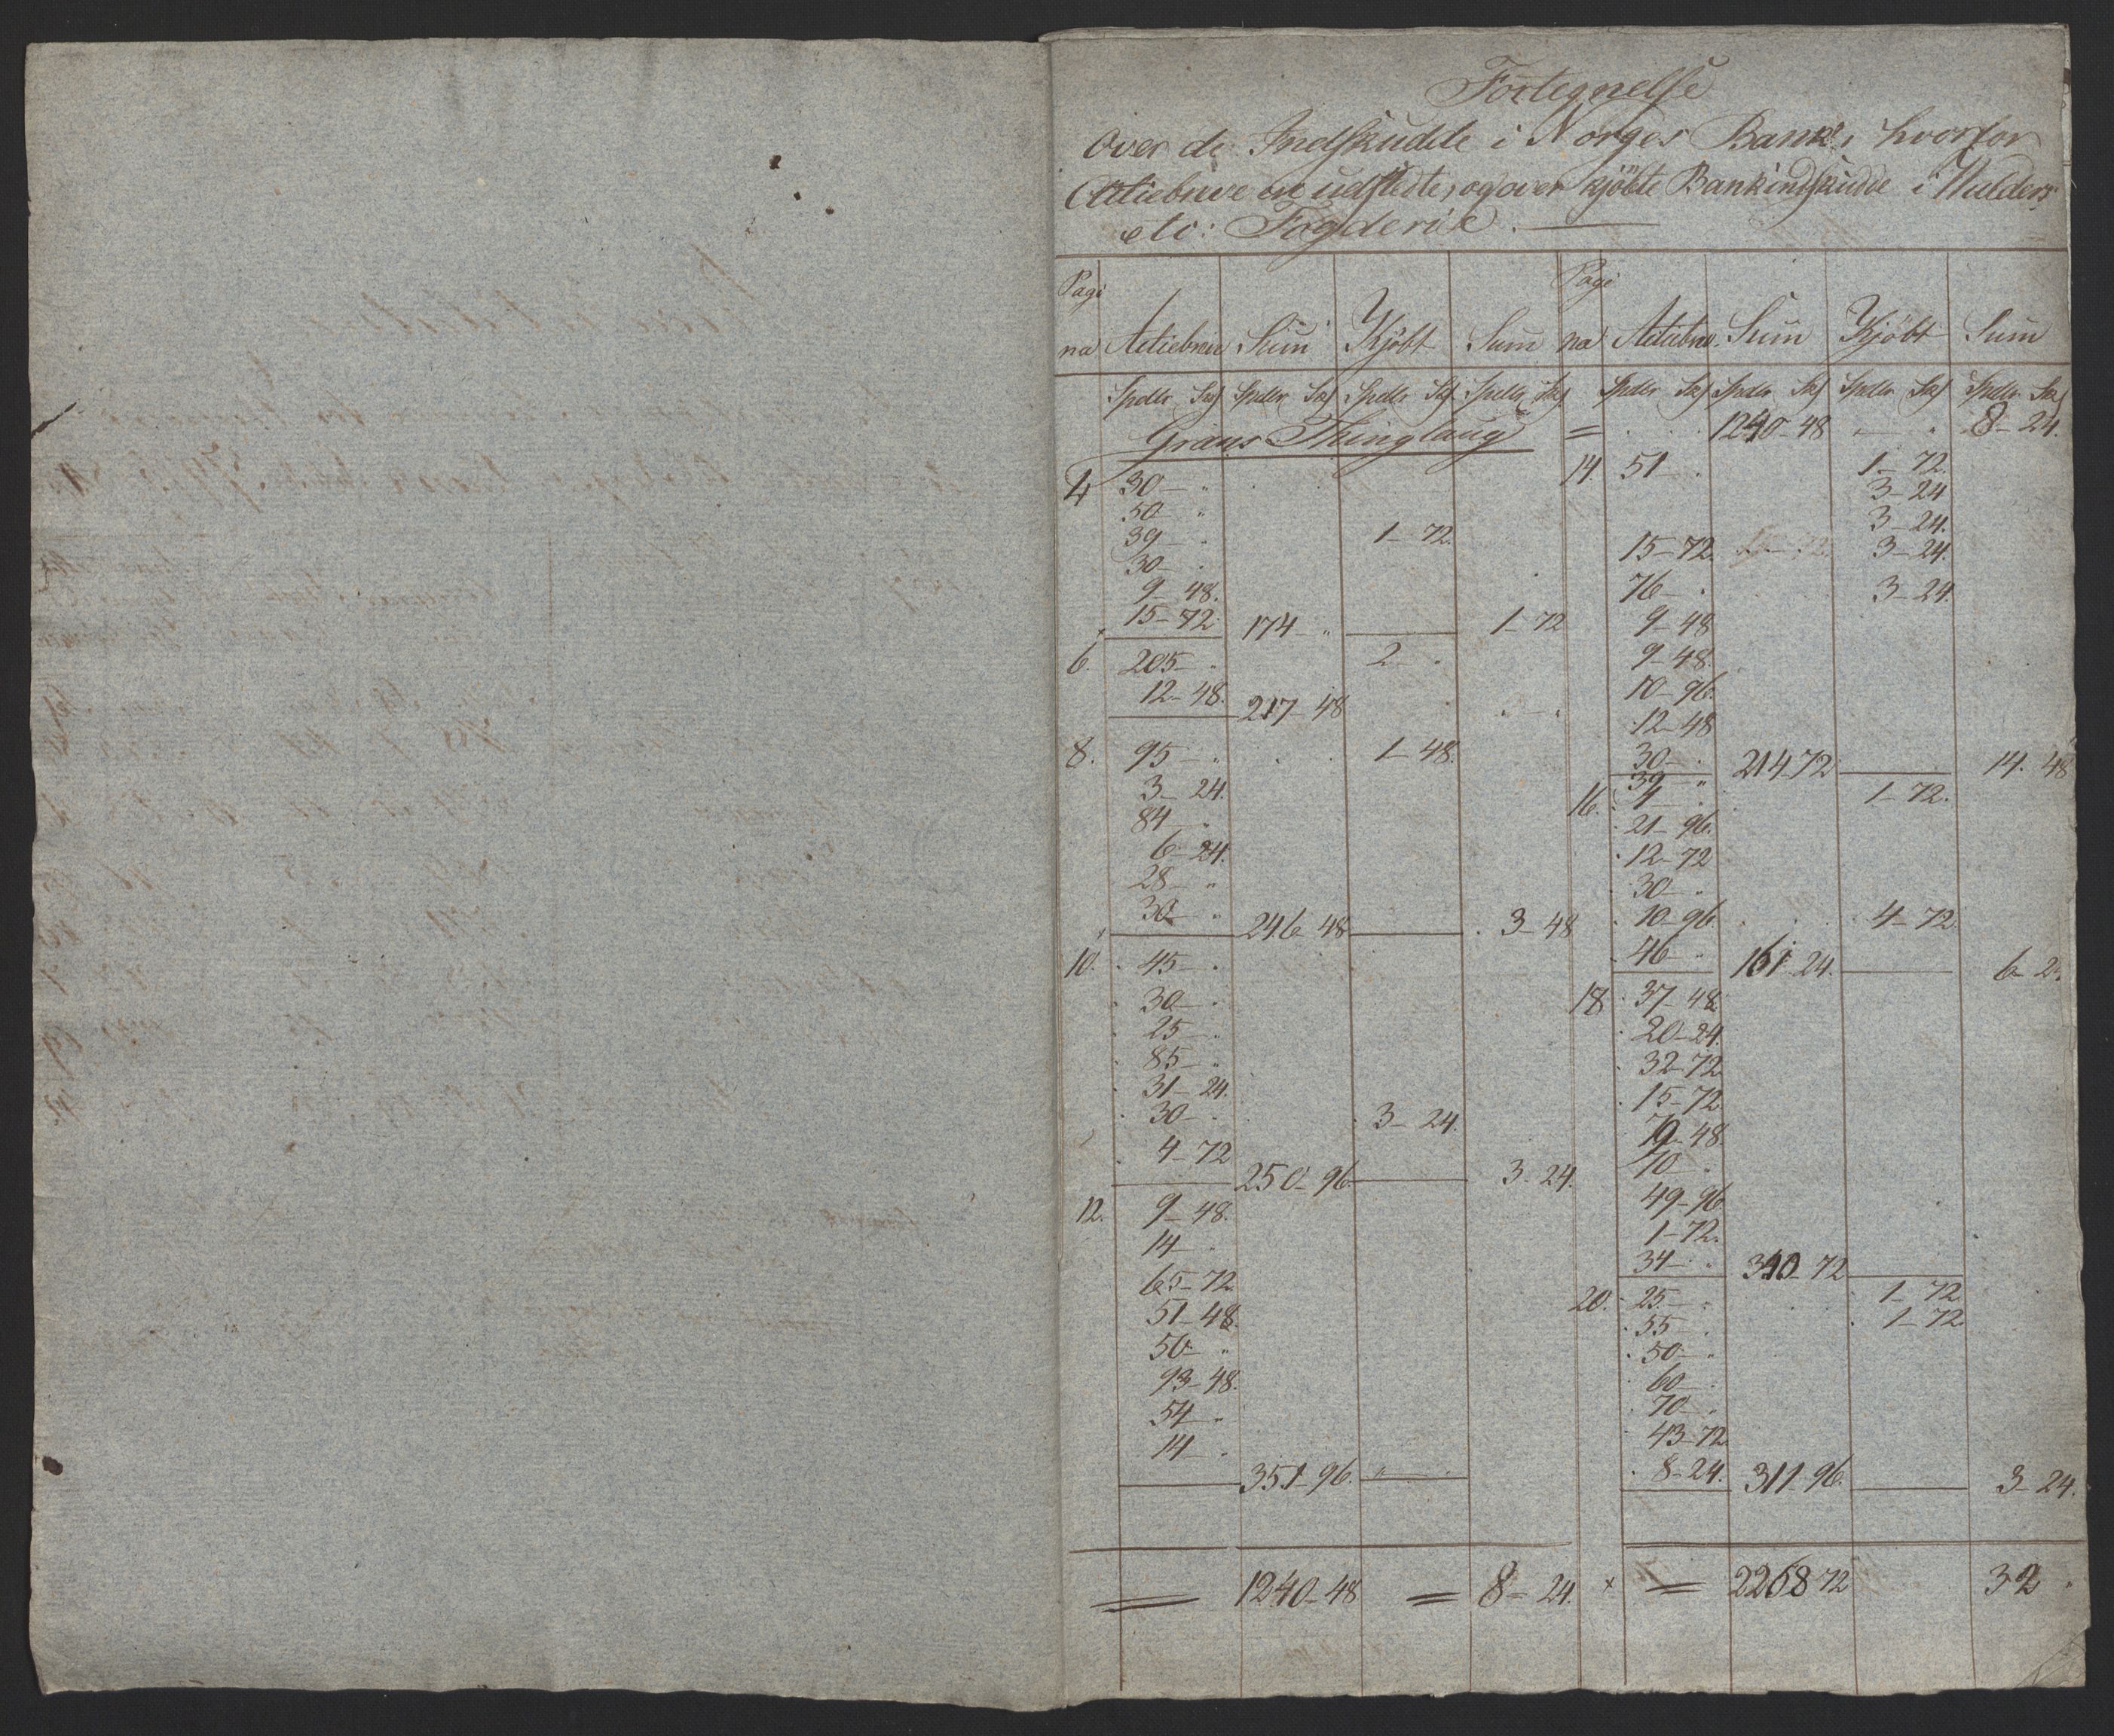 Fortegnelse
Over de Indskudde i Norges Bank, hvorfor
Actiebreve ere udstedte, og over kjöbte Bankindskudde i Walders
etc: Fogderie.
Pagina Actiebreve Sum Kjöbt Sum Pagina Actiebre. Sum Kjöbt Sum
Spdlr Sk Spdlr Sk Spdlr Sk Spdlr Sk Spdlr Sk Spdlr Sk Spdlr Sk Spdlr Sk
Grans Thinglaug
4 30 — "
50 "
39 — . 1 — 72.
30 — .
9 — 48.
15 — 72 174 — " 1 — 72
6. 205 — . 2 — .
12 — 48. 217 — 48 " — "
8. 95 — . 1 — 48.
3 — 24.
84 — .
6 — 24.
28 — "
30 — " 246 — 48 3 — 48
10. 45 — .
30 — .
25 — .
85 — "
31 — 24.
30 — . 3 — 24.
4 — 72 250 — 96 3 — 24.
12. 9 — 48.
14 — .
65 — 72
51 — 48.
50 — "
93 — 48.
54 — "
14 — .
351 — 96. "
1240 — 48 = 8 — 24.
= 1240 — 48 — " 8 — 24.
14 51 — . 1 — 72.
3 — 24
3 — 24.
15 — 72. 3 — 24.
76 — . 3 — 24.
9 — 48
9 — 48.
10 — 96.
12 — 48
30 — . 214 — 72 14. 48
39 "
16. 4 — . 1 — 72.
21 — 96.
12 — 72
30 — "
10 — 96. 4 — 72
46 — " 161 — 24. 6 —
18 37 — 48
20 — 24.
32 — 72
15 — 72.
48.
10 — .
49 — 96
1 — 72.
34 — " 340 — 72
20. 25. — " 1 — 72.
55 — . 1 — 72
50 — "
60 — .
70 — .
43 — 72
8 — 24. 311 — 96. 3 — 24.
= 2268 72 32 "